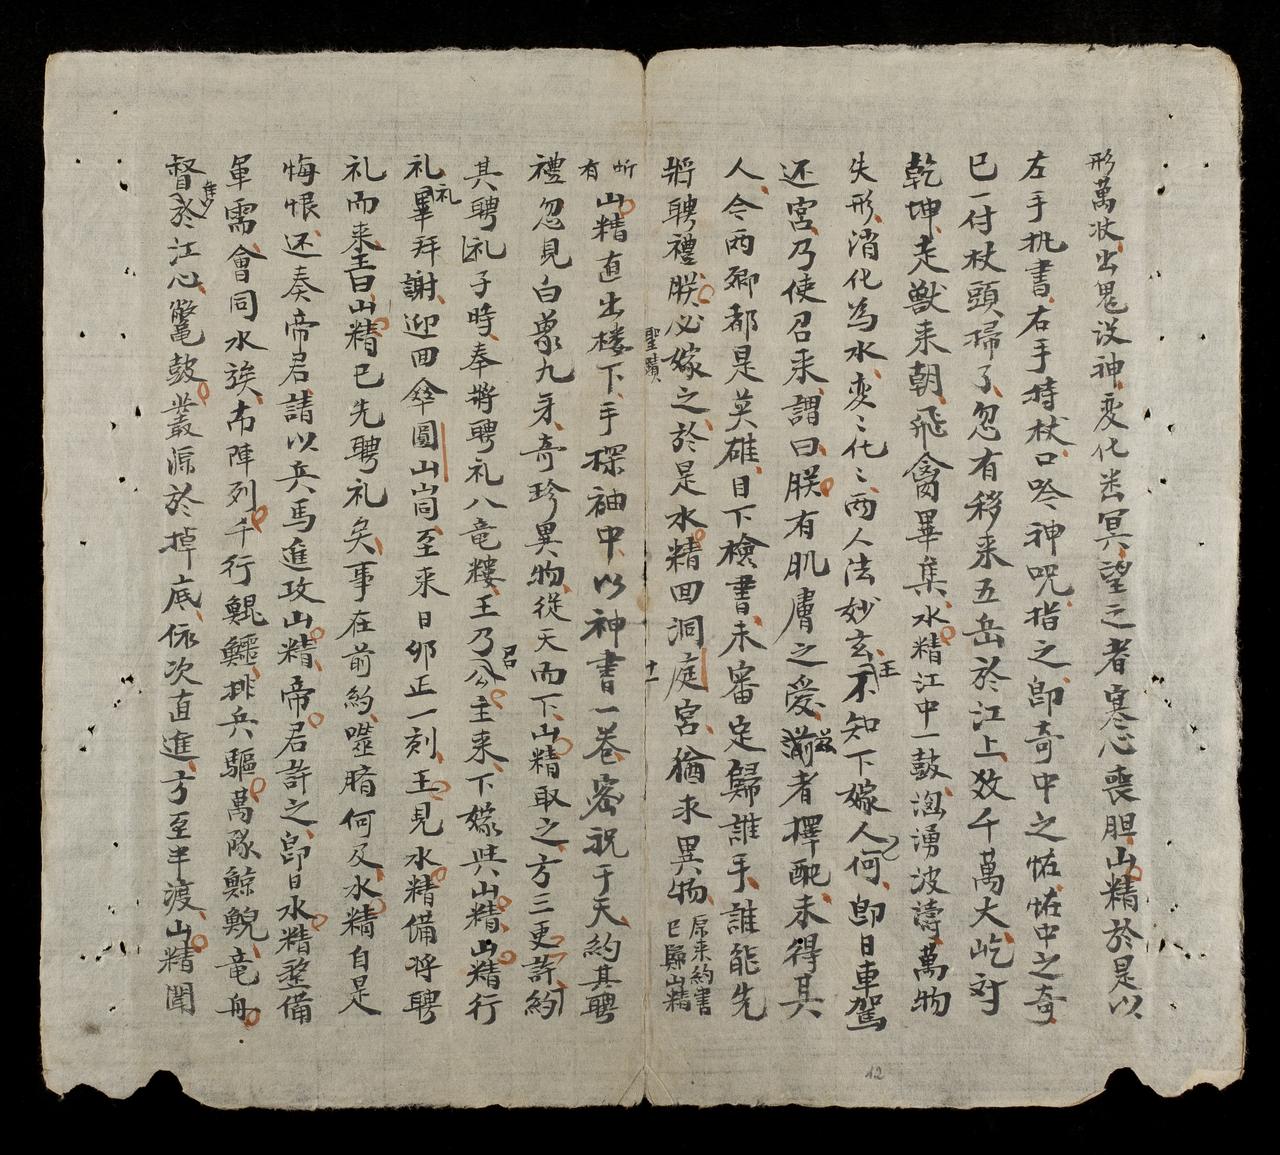 形萬状出鬼没神変化岺冥望之者寒心喪胆山精於是以
左手执書右手持杖口唸神呪指之即奇中之恠恠中之奇
已一付杖頭掃了忽有移来五岳於江上效千萬大屹対
乾坤走獣来朝飛禽畢集水精江中一鼓洶湧波濤萬物
失形消化為水変〻化〻両人法妙玄王不知下嫁人何即日車駕
还宮乃使召来謂曰朕有肌膚之愛茲者擇配未得其
人今両卿都是英雄目下檢書未審定歸誰手誰能先
將聘禮朕必嫁之於是水精回洞庭宮猶求異物原来約書已歸山精
聖蹟
十二
忻有山精直出楼下手探袖中以神書一卷密祝于天約其聘
禮忽見白象九牙奇珍異物従天而下山精取之方三更許約
其聘礼子時奉將聘礼八竜楼王乃召公主来下嫁与山精山精行
礼畢拜謝迎回傘圓山峝至来日卯正一刻王見水精備将聘
礼而来言山精已先聘礼矣事在前約噬臍何及水精自是
悔恨还奏帝君請以兵馬進攻山精帝君許之即日水精整備
軍需會同水族布陣列千行鯤鱷排兵驅萬隊鯨鯢竜舟
督於江心鼍鼓叢漂於掉底依次直進方至半渡山精聞
12